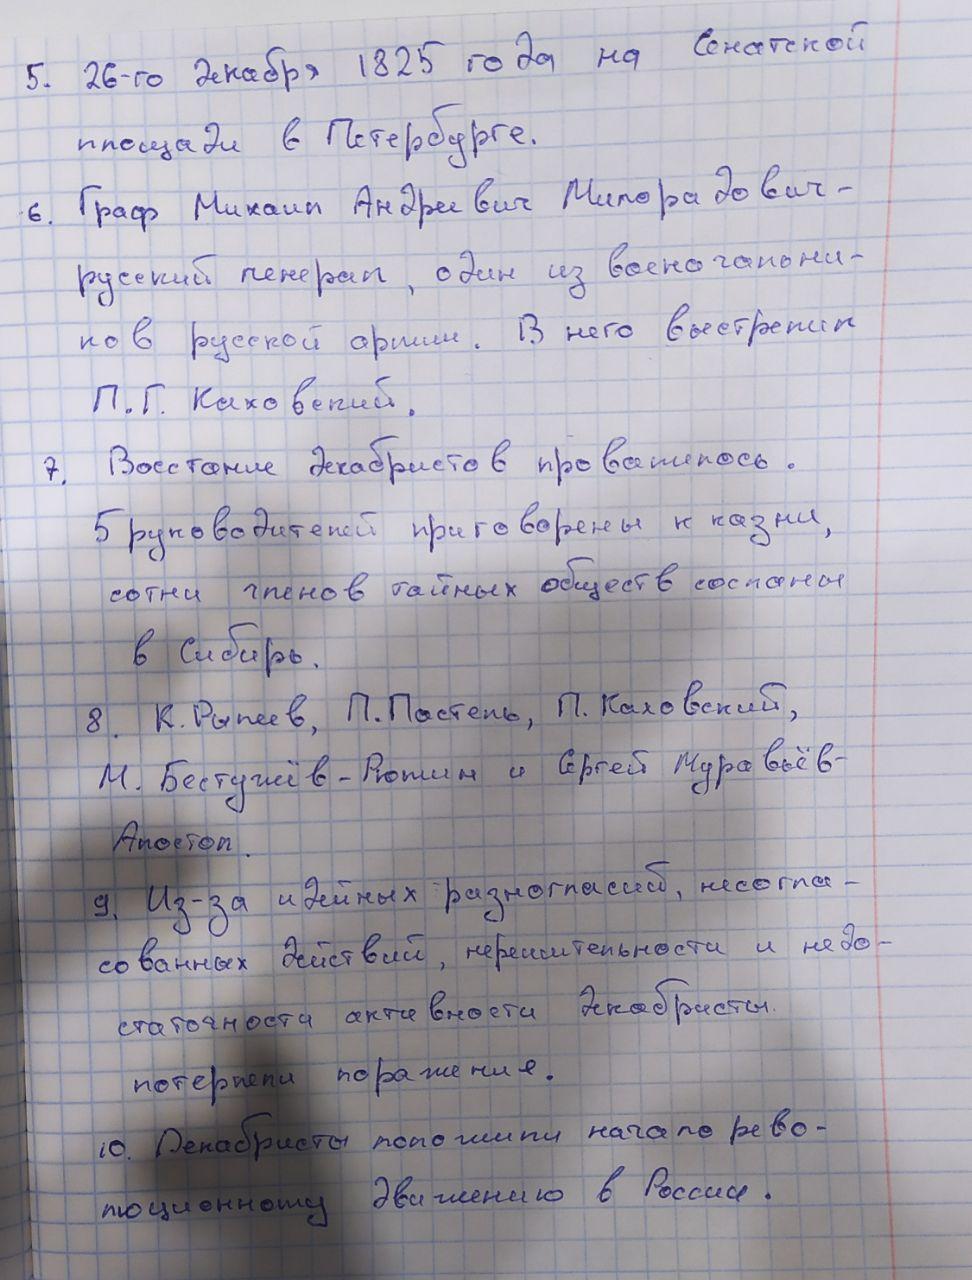 5. 26-го декабря 1825 года на Сенатской
площади в Петербурге.
6. Граф Михаил Андреевич Милорадович -
русский генерал, один из военочалони-
ков русской армии. В него выстрелил
П.Г. Каховский.
7. Восстание декабристов провалилось.
5 руководителей приговорены к казни,
сотни членов тайных обществ сосланы
в Сибирь.
8. К. Рылеев, П. Пестель, П. Каховский,
М. Бестужев-Рюмин и Сергей Муравьёв-
Апостол.
9. Из-за идейных разногласий, несогла-
сованных действий, нерешительности и недо-
статочности активности декабристы
потерпели поражение.
10. Декабристы положили начало рево-
люционному движению в России.